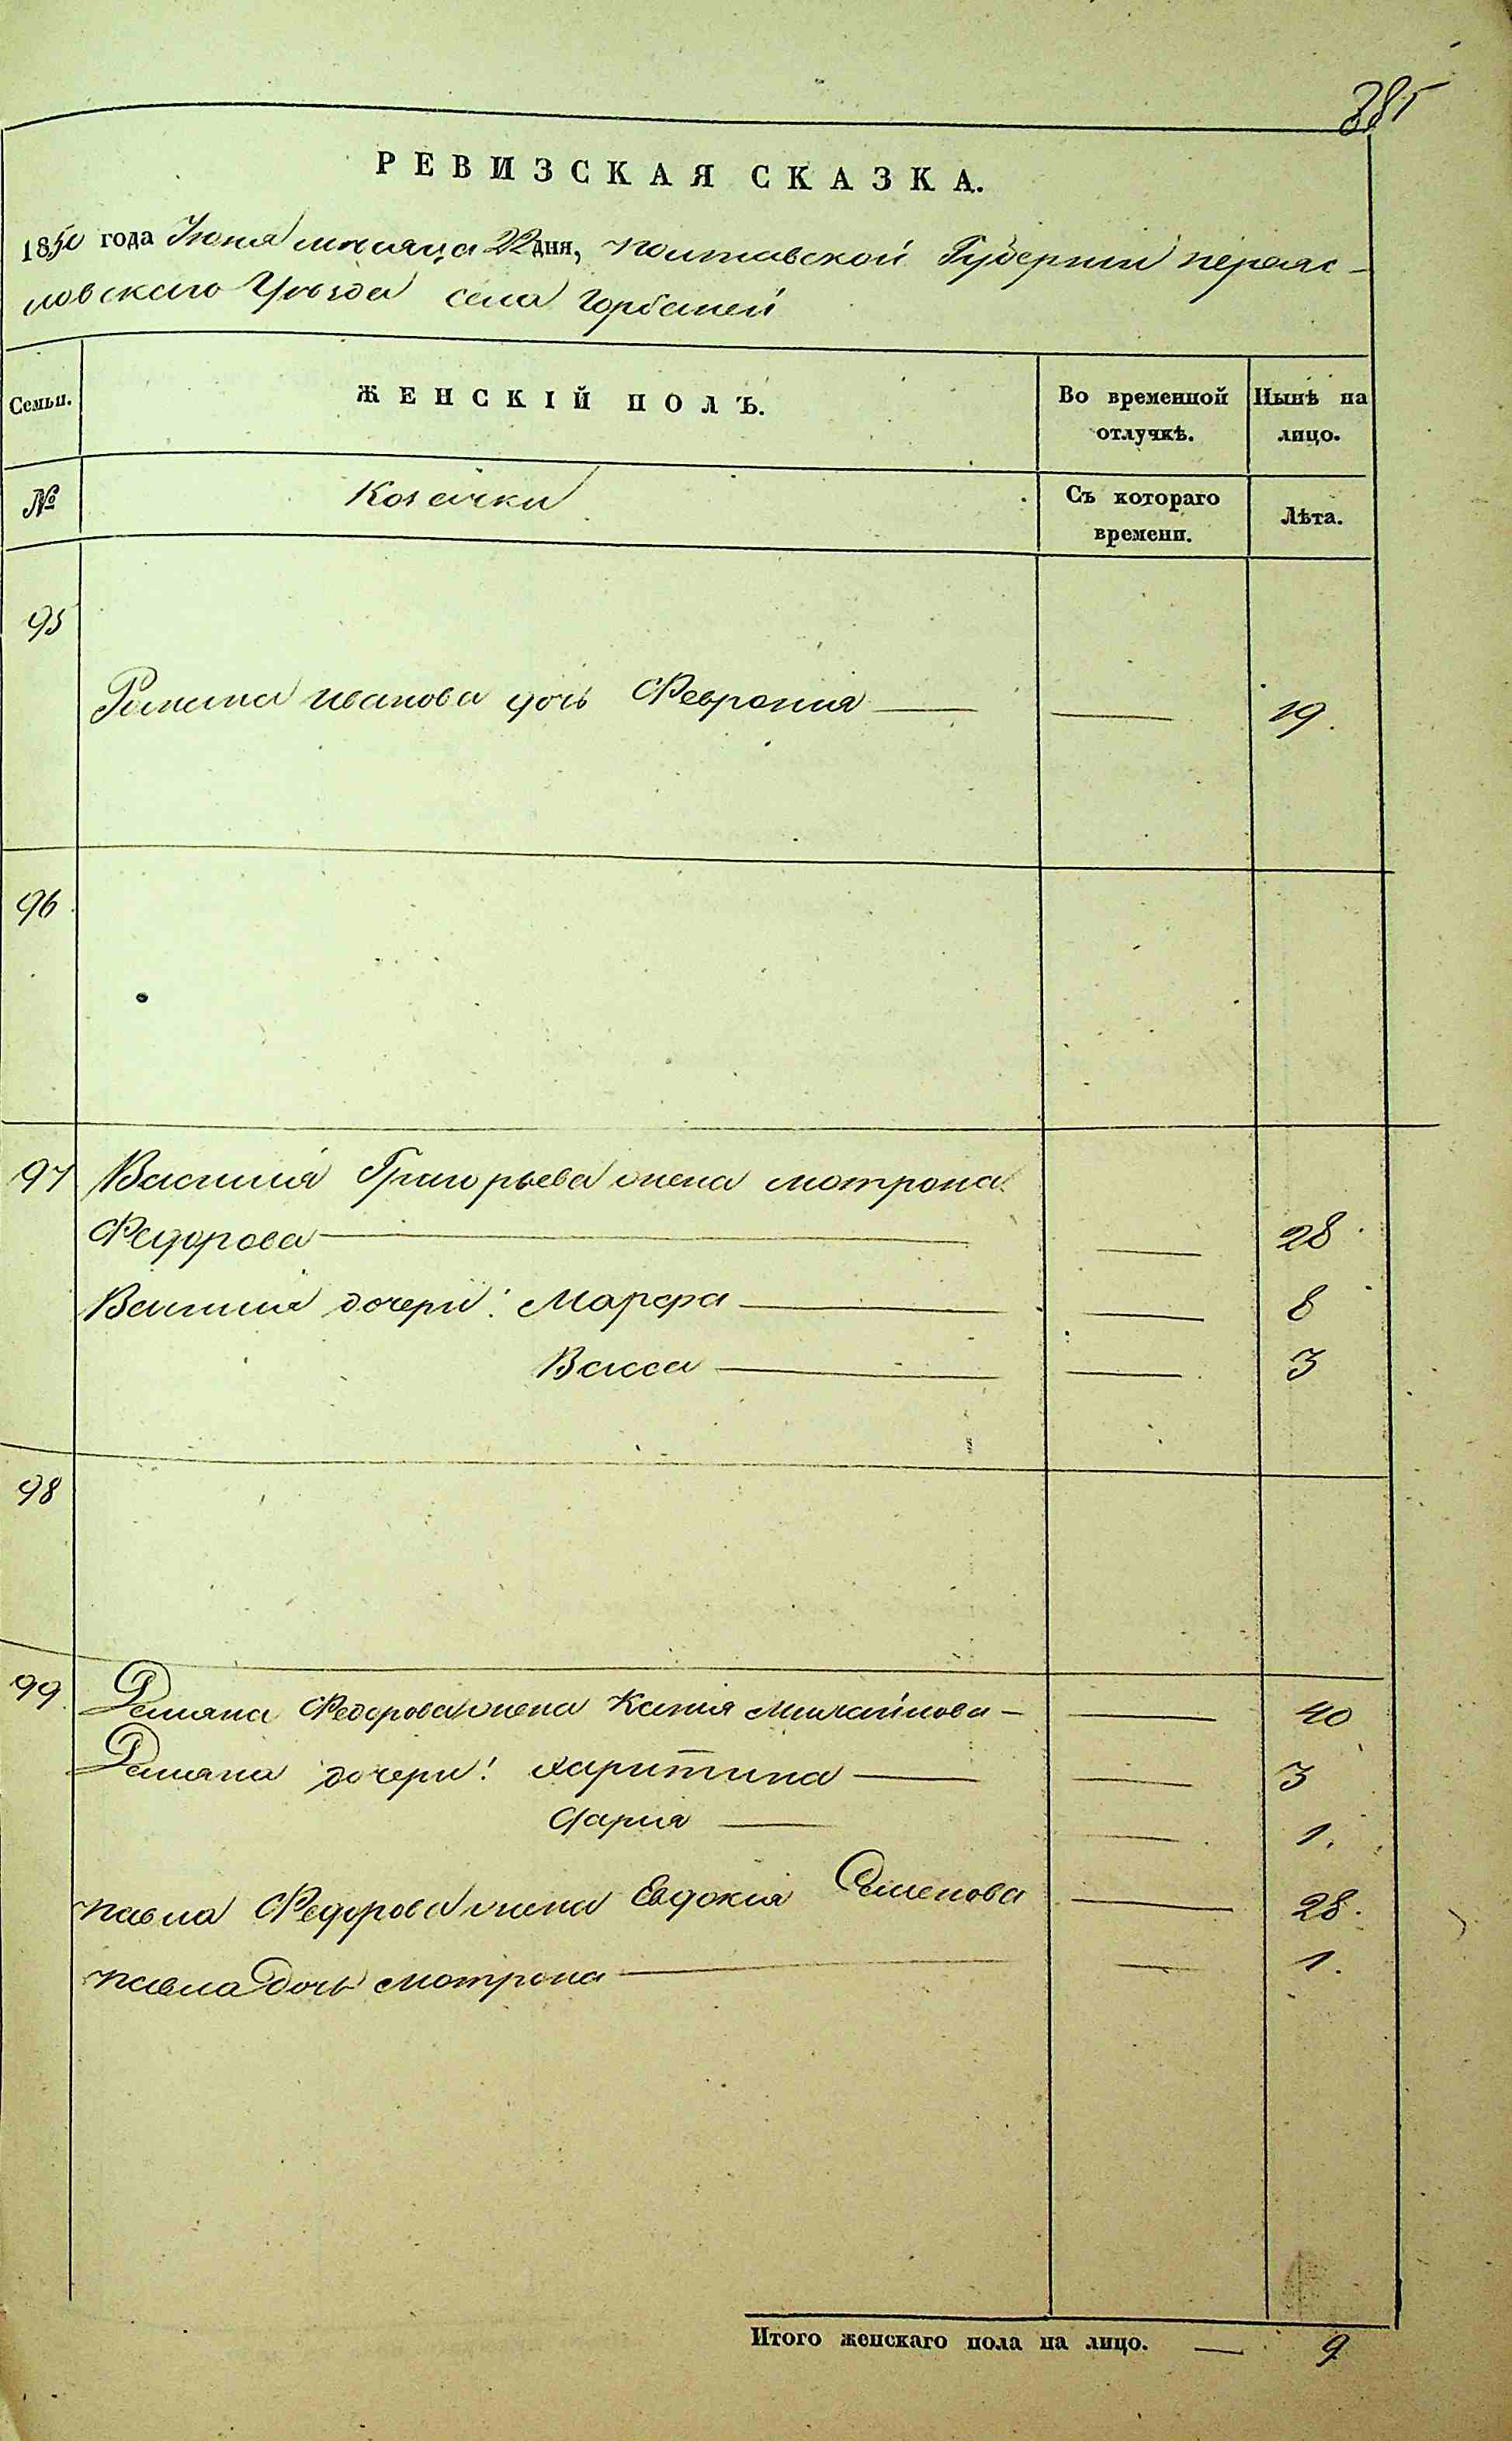 385
РЕВИЗСКАЯ СКАЗКА.
1850 года Июня месяца 22 дня, Полтавской Губернии Переяс-
ловского Уѣзда села Горбаней
Семьи. ЖЕНСКІЙ ПОЛЪ. Во временной отлучкѣ. Нынѣ на лицо.
№ Козачки Съ котораго времени. Лѣта.
95
Романа Иванова дочь Феврония — — 19.
96
97 Василия Григорьева жена Мотрона
Федорова — — 28
Василия дочери: Марфа — — 8
Васса — — 3
98
99 Демяна Федорова жена Ксения Михайлова — — 40
Демяна дочери: Харитина — — 3
Дария — — 1.
Павла Федорова жена Евдокия Семенова — 28.
Павла дочь Мотрона — — 1.
Итого женскаго пола на лицо. — 9